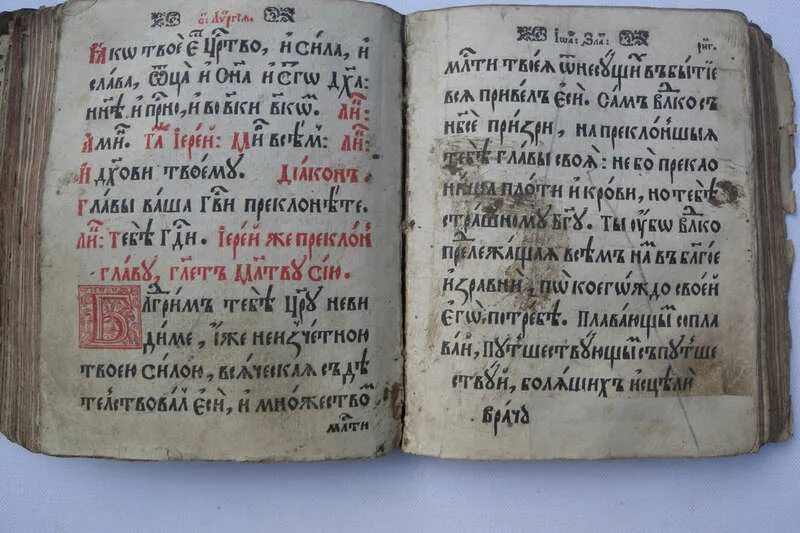 с: Лѷргїѧ:
Ꙗкѡ твоѐ є҆́ ц҇ртво, и҆ си́ла, и҆
сла́ва, ѿца̀ и҆ с҃на и҆ ст҃гѡ дх҃а:
нн҃ѣ и҆ при́но, и҆ во вѣ́ки вѣкѡ́. Ли̑:
Амн҃. Та̑ І҆ере́й: Ми́ всѣ́м: Ли̑:
И҆ дх҃ови твоемꙋ. Дїа́конъ.
Главы̀ ва́ша гв҃и преклонѣ́те.
Ли̑: Тебѣ̀ гд҃и. І҆ере́й же преклон́
главꙋ̀, гл҃етъ мл҃твꙋ сїю̀.
Благ҃рим̾ тебѐ цр҃ю неви
ди́ме, и҆́же неизче́тною
твоею си́лою, всѧ́ческаѧ съдѣ
те́лствовал̾ є҆сѝ, и҆ мно́жество́
мл҃ти
І҆ѡа: Зла: рг҃і
мл҃ти твоеѧ̀ ѿ несꙋщи́ въ бытїѐ
всѧ приве́лъ є҆сѝ. Самъ влⷣко съ
нб҃се при́зри, на прекло́ншыѧ
тебѣ̀ главы̀ своѧ̀: не бо̀ прекло
ни́ша пло́ти и҆ кро́ви, но тебѣ̀
стра́шномꙋ бг҃ꙋ. Ты̀ ᲂу҆̀бѡ влⷣко
прележа́щаѧ всѣ́м на́ въ благі́е
и҆зравнѝ, по коегѡ́ждо свое́й
є҆гѡ̀ потре́бѣ. Пла́вающы сопла
ва́й, пꙋтше́ствꙋющы съпꙋтше
ствꙋ́й, болѧ́щихъ и҆сцѣлѝ
врачꙋ̀